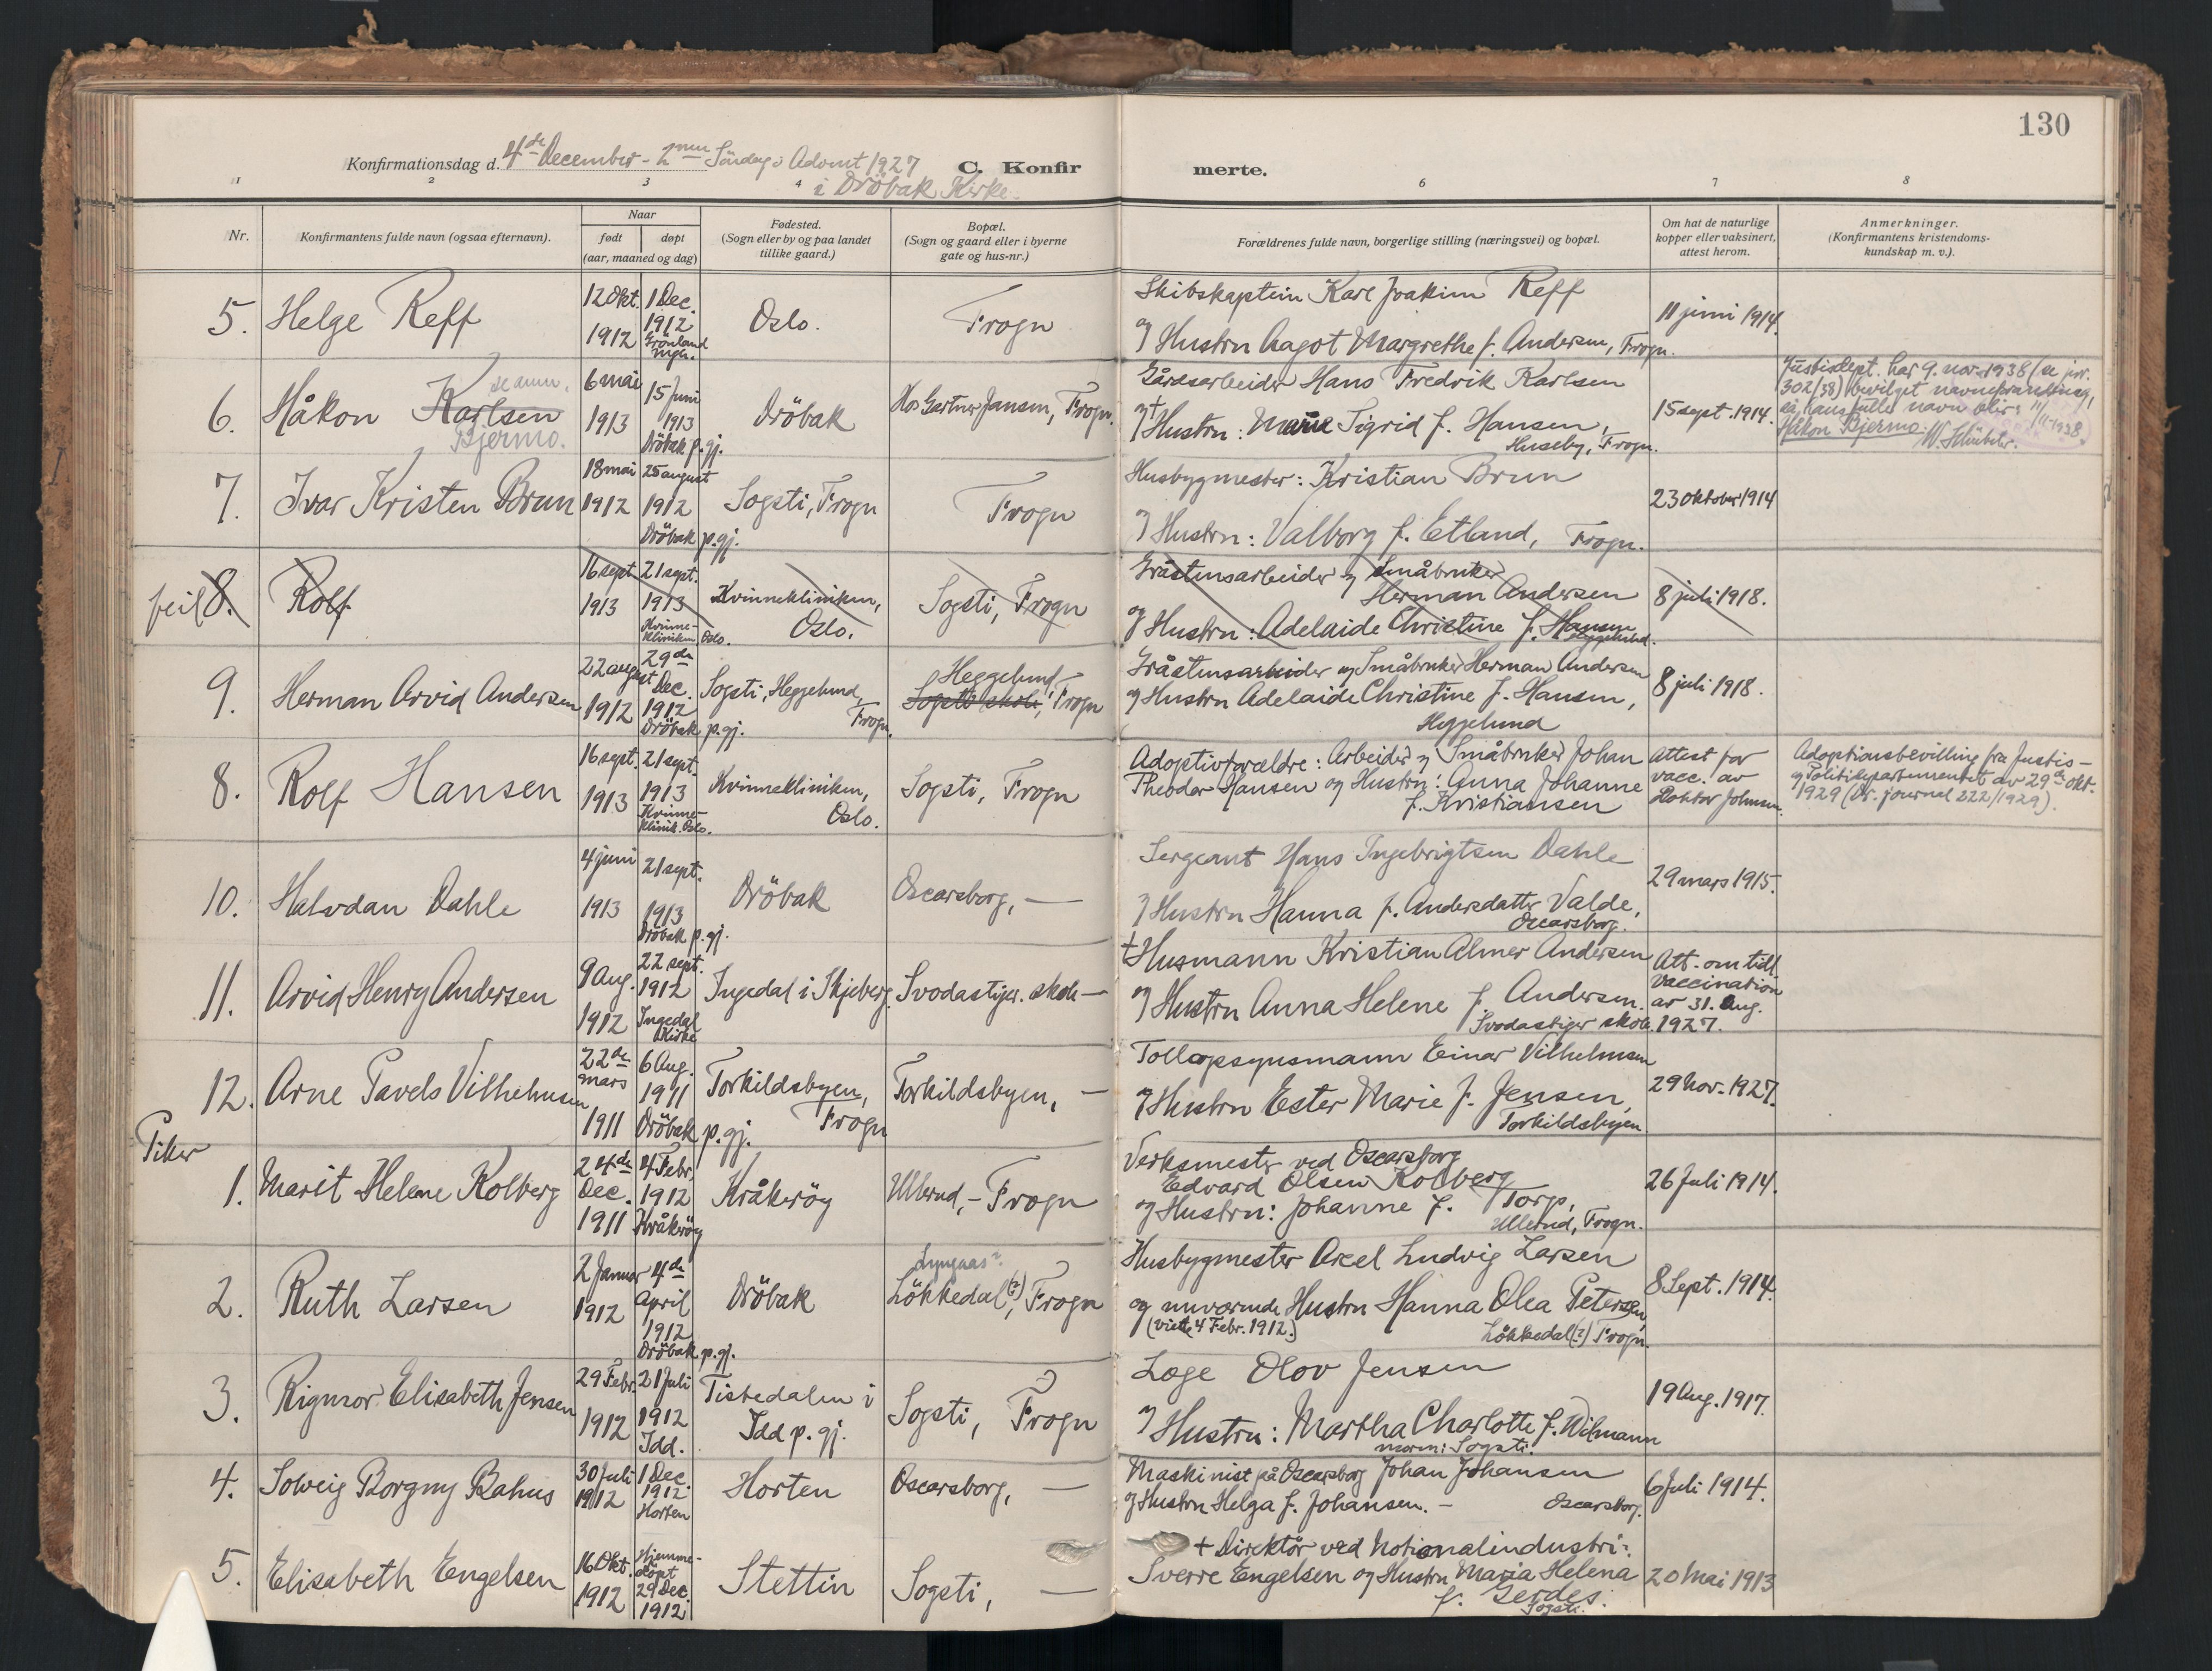 130
Konfirmationsdag d. 4de December - 2nen Söndag i Advent 1927
i Dröbak Kirke.
C. Konfirmerte.
1 2 3 4 6 7 8
Nr.
Konfirmantens fulde navn (ogsaa efternavn).
Naar
født døpt
(aar, maaned og dag)
Fødested.
(Sogn eller by og paa landet
tillike gaard.)
Bopæl.
(Sogn og gaard eller i byerne
gate og hus-nr.)
Forældrenes fulde navn, borgerlige stilling (næringsvei) og bopæl.
Om hat de naturlige
kopper eller vaksinert,
attest herom.
Anmerkninger.
(Konfirmantens kristendoms-
kundskap m. v.).
5. Helge Reff
12 Okt.
1912
1 Dec.
1912
Grönland
Oslo.
Frogn
Skibskaptein Karl Joakim Reff
og Hustru Aagot Margrethe f. Andersen, Frogn.
11 juni 1914.
6. Håkon Karlsen
se anm.
Bjermo.
6 mai
1913
15 juni
1913
Dröbak p.gj.
Dröbak
Hos Gartner Jansen, Frogn.
Gårdsarbeider Hans Fredrik Karlsen
og + Hustru: Marie Sigrid f. Hansen,
Huseby, Frogn.
15 sept. 1914.
Justisdept. har 9. nov. 1938 (se jnr.
302/38) bevilget navneforandring,
så hans fulle navn blir:
Håkon Bjermo.
7. Ivar Kristen Brun
18 mai
1912
25 august
1912
Dröbak p.gj.
Sogsti, Frogn
Frogn
Husbygmester: Kristian Brun
og Hustru: Valborg f. Etland, Frogn.
23 oktober 1914
feil 8. Rolf
16 sept.
1913
21 sept.
1913
Kvinne-
kliniken Oslo.
Kvinnekliniken,
Oslo.
Sogsti, Frogn
Gråstensarbeider og Småbruker
Herman Andersen
og Hustru: Adelaide Christine f. Hansen
Heggelund.
8 juli 1918.
9. Herman Arvid Andersen
22 august
1912
29de
Dec.
1912
Dröbak p.gj.
Sogsti, Heggelund,
Frogn.
Heggelund
Sogsti skole, Frogn
Gråstensarbeider og Småbruker Herman Andersen
og Hustru Adelaide Christine f. Hansen,
Heggelund
8 juli 1918.
8. Rolf Hansen
16 sept.
1913
21 sept.
1913
Kvinne-
klinik. Oslo.
Kvinnekliniken,
Oslo.
Sogsti, Frogn
Adoptivforældre: Arbeider og Småbruker Johan
Theodor Hansen og Hustru: Anna Johanne
f. Kristiansen
Attest for
vacc. av
Doktor Johnsen.
Adoptionsbevilling fra Justis-
og Politidepartementet av 29de okt.
1929 (Dr. journal 222/1929).
10. Halvdan Dahle
4 juni
1913
21 sept.
1913
Dröbak p.gj.
Dröbak
Oscarsborg, —
Sergeant Hans Ingebrigtsen Dahle
og Hustru Hanna f. Andersdatter Valde,
Oscarsborg.
29 mars 1915.
11. Arvid Henry Andersen
9 Aug.
1912
22 sept.
1912
Ingedal
Kirke
Ingedal i Skjeberg
Svodastiger. skole —
+ Husmann Kristian Almer Andersen
og Hustru Anna Helene f. Andersen.
Svodastiger skole.
Att. om tidl.
Vaccination
av 31. Aug.
1927.
12. Arne Pavels Vilhelmsen
22de
mars
1911
6 Aug.
1911
Dröbak p.gj.
Torkildsbyen,
Frogn
Torkildsbyen, —
Tollopsynsmann Einar Vilhelmsen
og Hustru Ester Marie f. Jensen,
Torkildsbyen
29 Nov. 1927.
Piker
1. Marit Helene Kolberg
24de
Dec.
1911
4 Febr.
1912
Kråkeröy
Kråkeröy
Ullerud, - Frogn
Verksmester ved Oscarsborg
Edvard Olsen Kolberg
og Hustru: Johanne f. Torp,
Ullerud, Frogn.
26 Juli 1914.
2. Ruth Larsen
2 Januar
1912
4de
April
1912
Dröbak p.gj.
Dröbak
Lyngaas?
Lökkedal (?), Frogn
Husbygmester Axel Ludvig Larsen
og nuværende Hustru Hanna Olea Petersen,
(viet 4 Febr. 1912.)
Lökkedal (?) Frogn.
8 Sept. 1914.
3. Rigmor Elisabeth Jensen
29 Febr.
1912
21 Juli
1912
Idd.
Tistedalen i
Idd p. gj.
Sogsti, Frogn
Læge Olov Jensen
og Hustru: Martha Charlotte f. Wilmann
Sogsti.
19 Aug. 1917.
4. Solveig Borgny Bahus
30 Juli
1912
1 Dec.
1912
Horten
Horten
Oscarsborg, —
Maskinist på Oscarsborg Johan Johansen
og Hustru Helga f. Johansen. — Oscarsborg.
6 Juli 1914.
5. Elisabeth Engelsen
16 Okt.
1912
Hjemme-
döpt
29 Dec.
1912
Stettin
Sogsti, —
+ Direktör ved Nationalindustri:
Sverre Engelsen og Hustru Maria Helena
f. Gerdes.
Sogsti.
20 Mai 1913